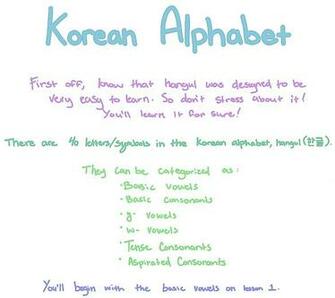 Korean Alphabet
First off, know that hangul was designed to be
very easy to learn. So don't stress about it!
You'll learn it for sure!
There are 40 letters/symbols in the Korean alphabet, hangul (한글).
They can be categorized as:
• Basic vowels
• Basic Consonants
• y- vowels
• w- vowels
• Tense Consonants
• Aspirated Consonants
You'll begin with the basic vowels on lesson 1.